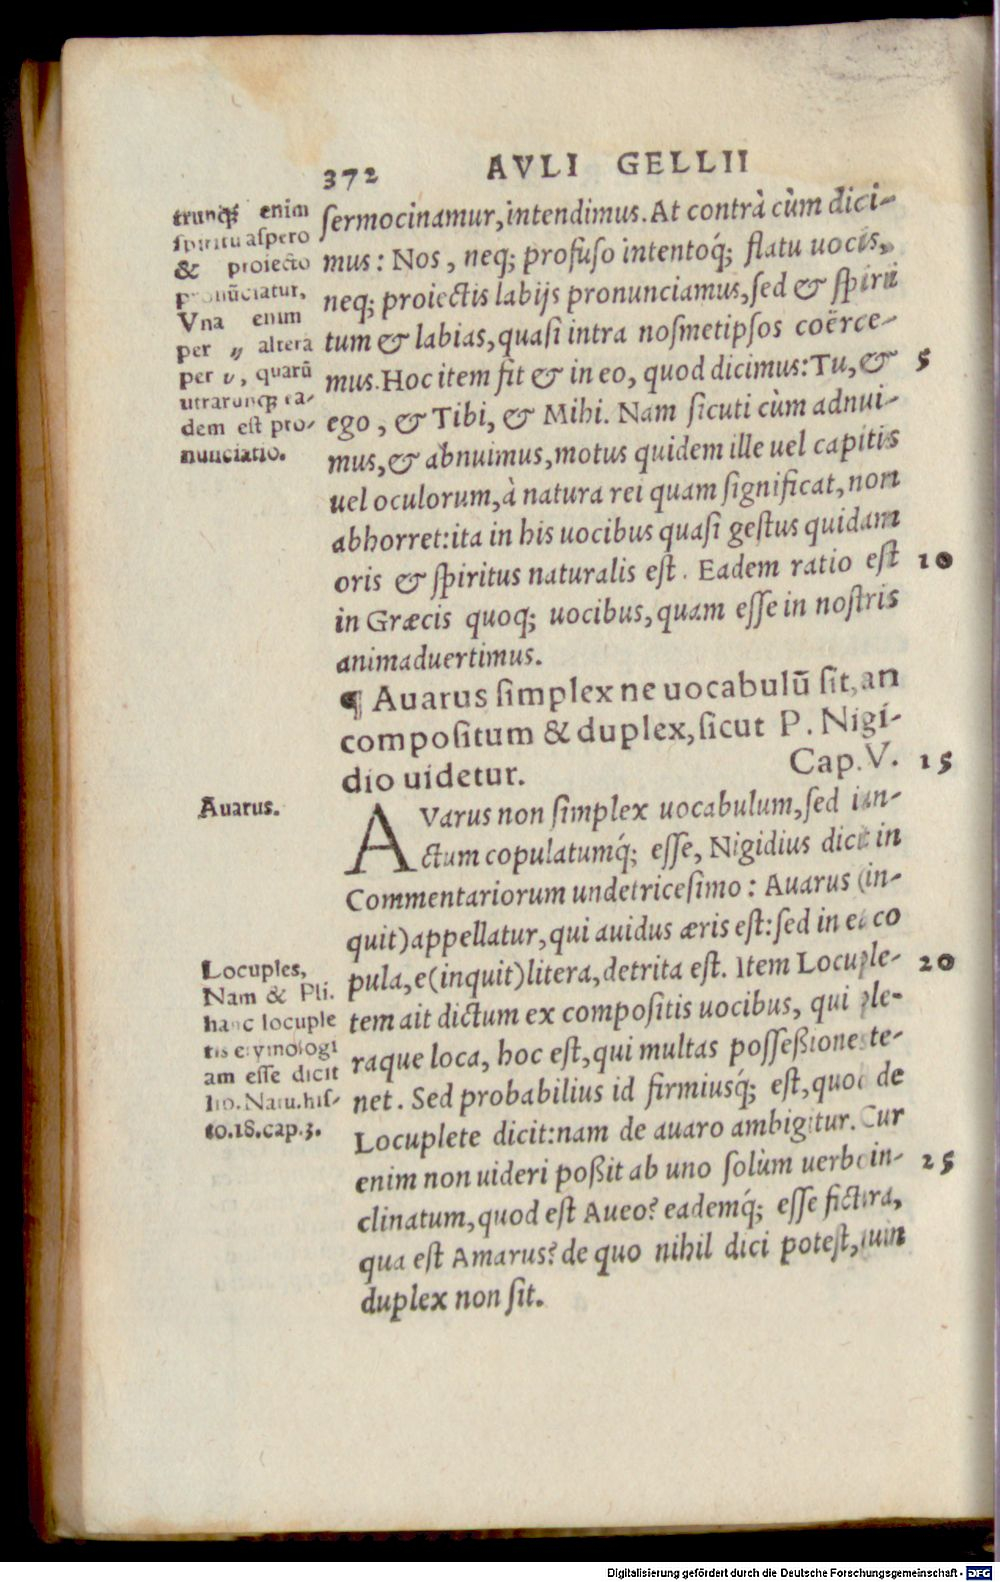 372 AVLI GELLII
trunq̃ enim
spiritu aspero
& proiecto
pronũciatur,
Vna enim
per η altera
per υ, quarũ
utrarunq̃ ea-
dem est pro-
nunciatio.
sermocinamur, intendimus. At contrà cùm dici-
mus: Nos, neq; profuso intentoq́; flatu uocis,
neq; proiectis labijs pronunciamus, sed & spiri
tum & labias, quasi intra nosmetipsos coërce-
mus. Hoc item fit & in eo, quod dicimus: Tu, & 5
ego, & Tibi, & Mihi. Nam sicuti cùm adnui-
mus, & abnuimus, motus quidem ille uel capitis
uel oculorum, à natura rei quam significat, non
abhorret: ita in his uocibus quasi gestus quidam
oris & spiritus naturalis est. Eadem ratio est 10
in Græcis quoq; uocibus, quam esse in nostris
animaduertimus.
¶ Auarus simplex ne uocabulũ sit, an
compositum & duplex, sicut P. Nigi-
dio uidetur. Cap. V. 15
Auarus.
AVarus non simplex uocabulum, sed iun-
ctum copulatumq́; esse, Nigidius dicit in
Commentariorum undetricesimo: Auarus (in-
quit) appellatur, qui auidus æris est: sed in ea co
pula, e (inquit) litera, detrita est. Item Locuple- 20
tem ait dictum ex compositis uocibus, qui ple-
raque loca, hoc est, qui multas possessiones te-
net. Sed probabilius id firmiusq́; est, quod de
Locuplete dicit: nam de auaro ambigitur. Cur
enim non uideri possit ab uno solùm uerbo in- 25
clinatum, quod est Aueo? eademq́; esse fictura,
qua est Amarus? de quo nihil dici potest, quin
duplex non sit.
Locuples,
Nam & Pli.
hanc locuple
tis etymologi
am esse dicit
lib. Natu. his-
to. 18. cap. 3.
Digitalisierung gefördert durch die Deutsche Forschungsgemeinschaft - DFG